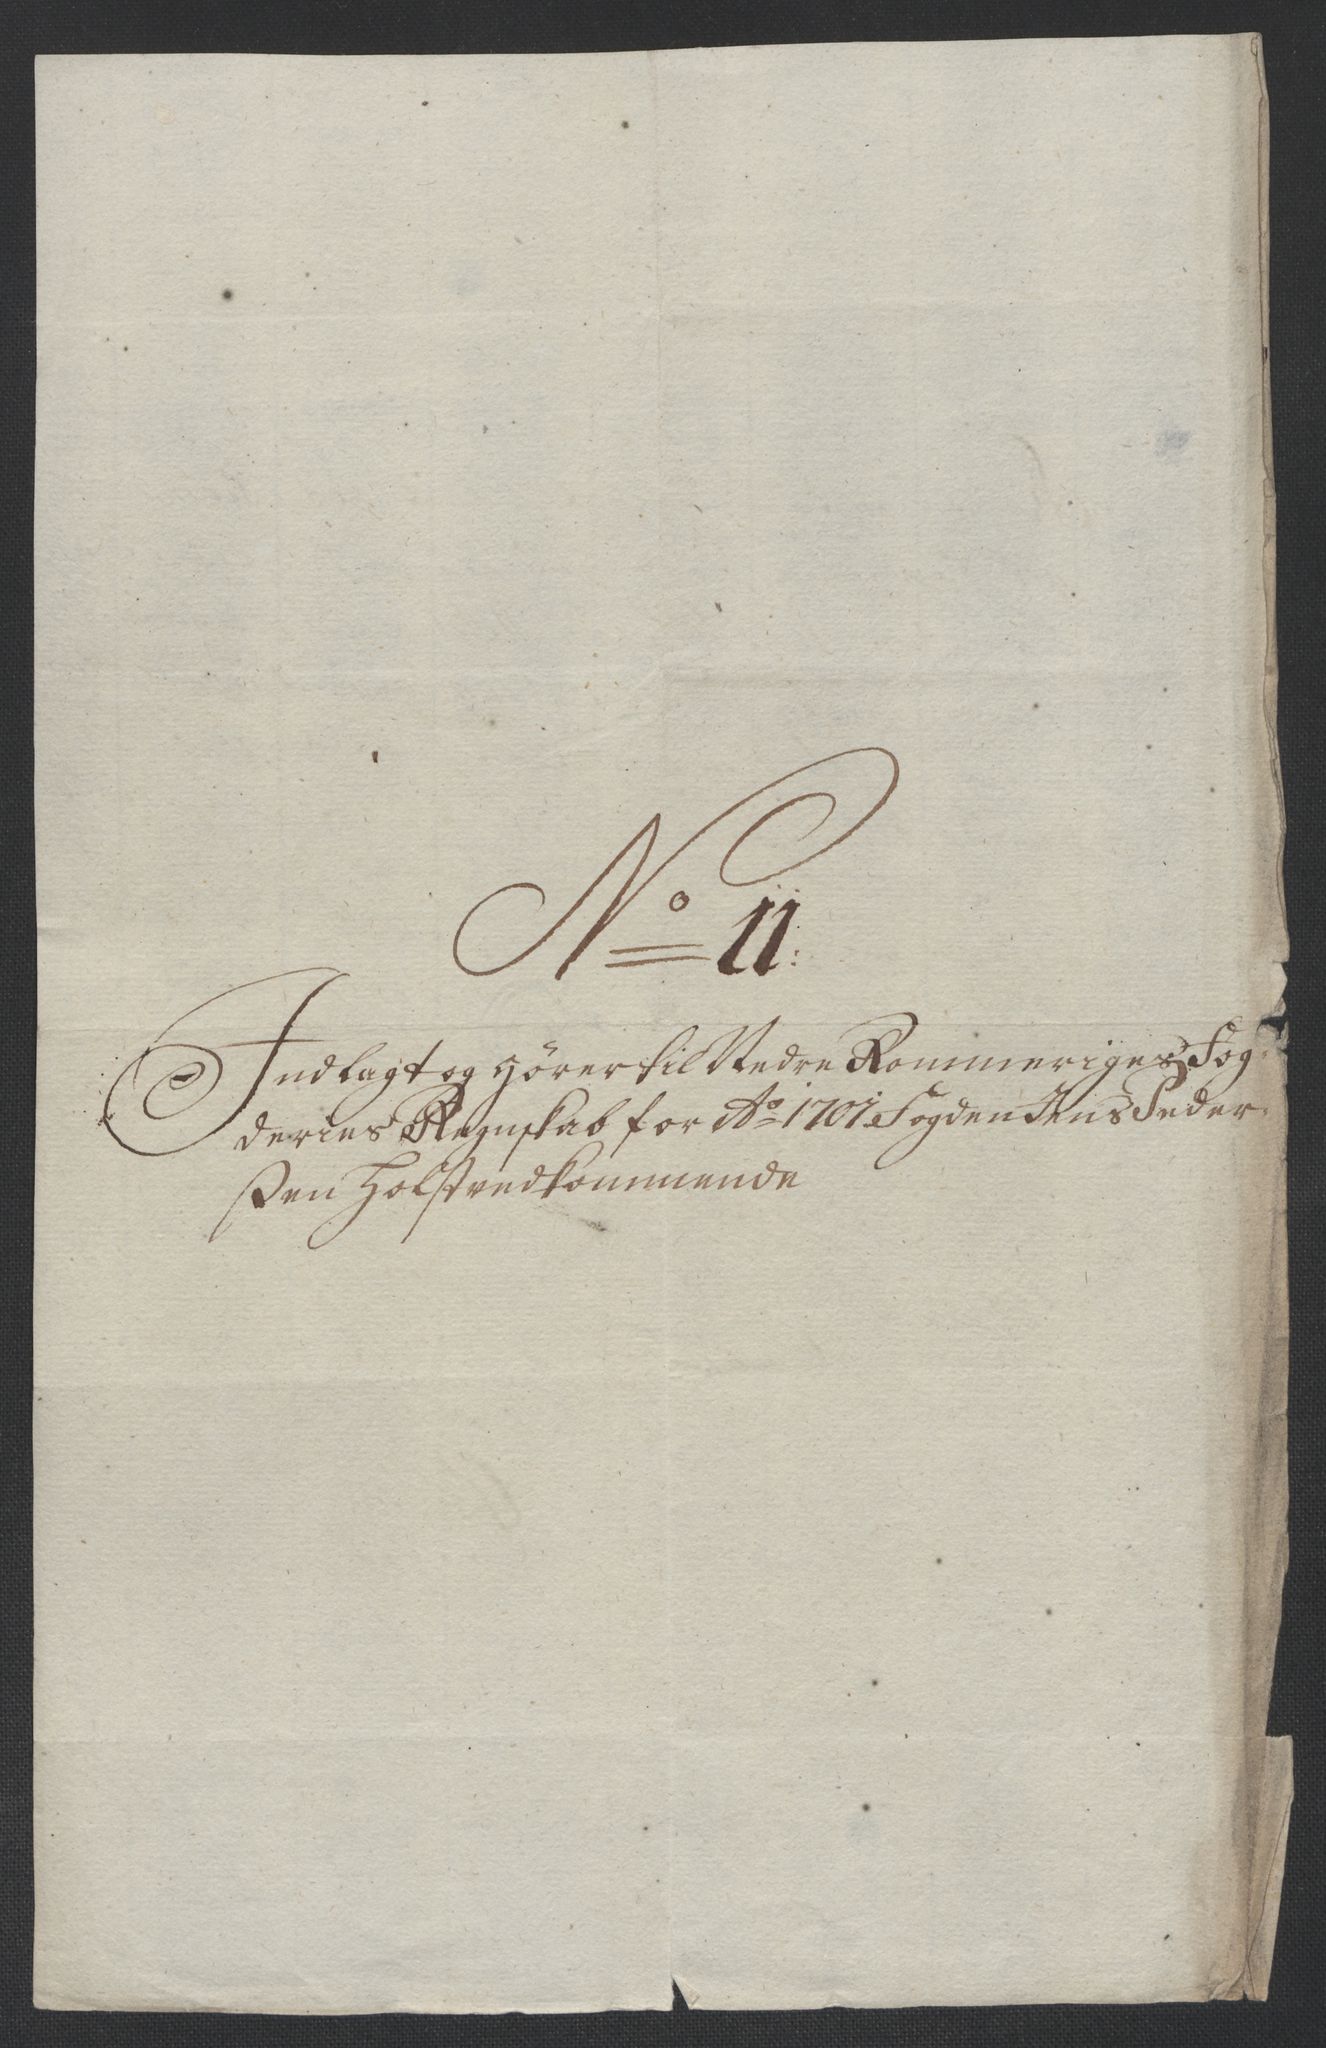 No 11:
Indlagt og hörer til Nedre Rommeriges Fog-
deries Regnskab for Ao 1701 Fogden Jens Peder-
sen Holst vedkommende